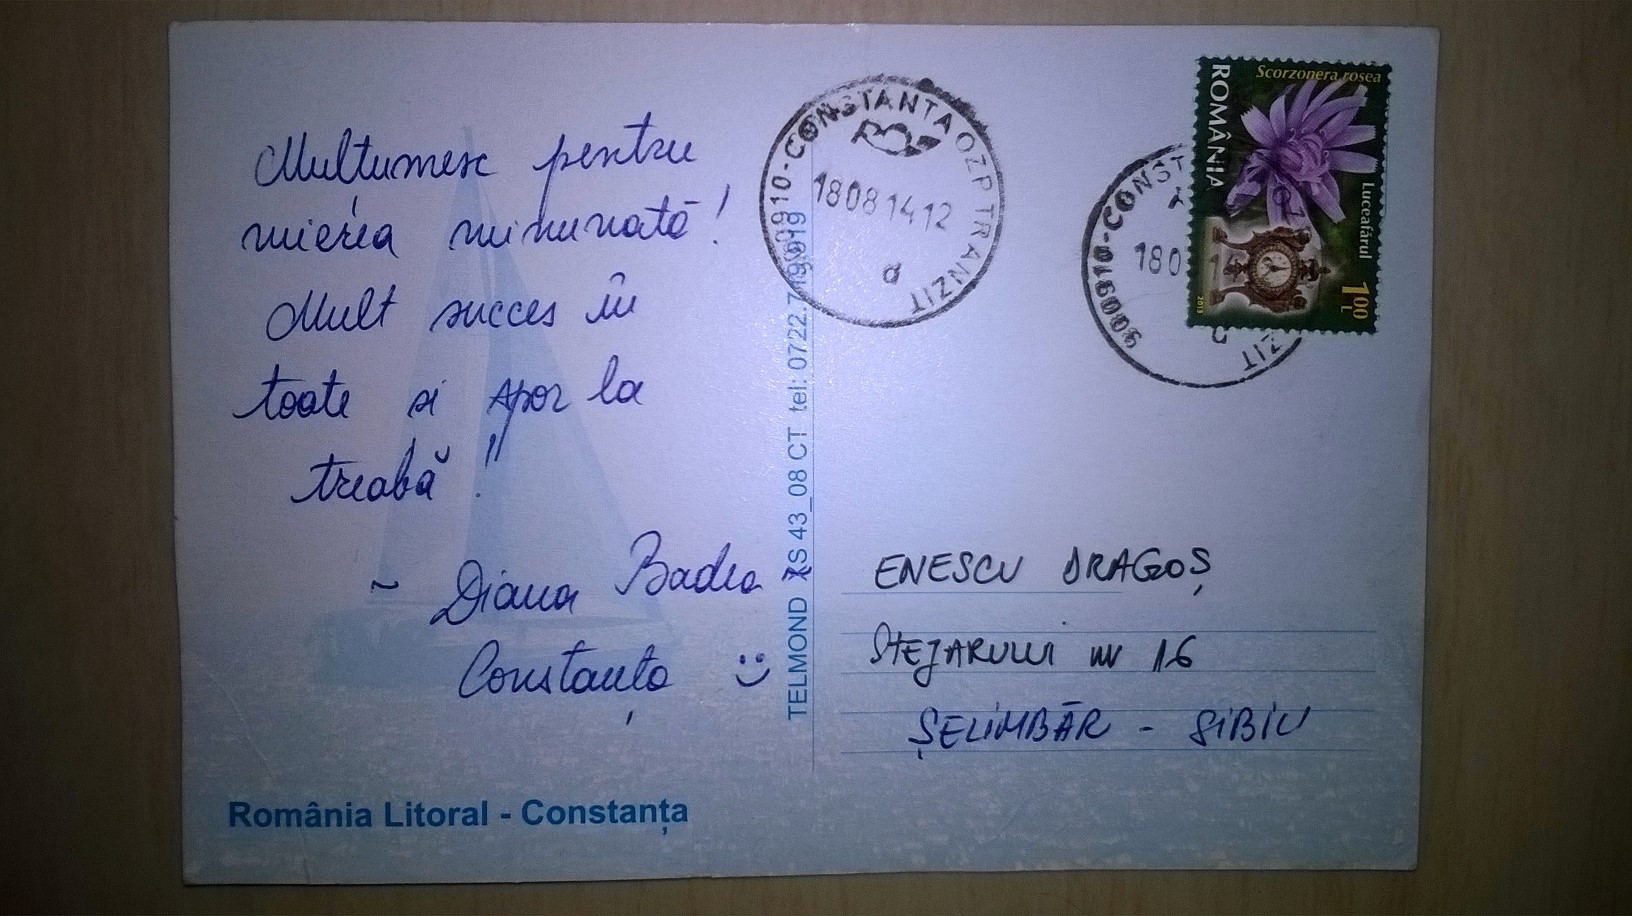 Mulțumesc pentru
mierea minunată!
Mult succes în
toate si spor la
treabă!!
~ Diana Badea
Constanța :)
România Litoral - Constanța
TELMOND XS 43_08 CT tel: 0722.749.919
900910-CONSTANTA OZP TRANZIT
18 08 14 12
d
900910-CONST
180
ZIT
ROMÂNIA
Scorzonera rosea
Luceafărul
1 00 L
2013
ENESCU DRAGOȘ
STEJARULUI nr 16
ȘELIMBĂR - SIBIU